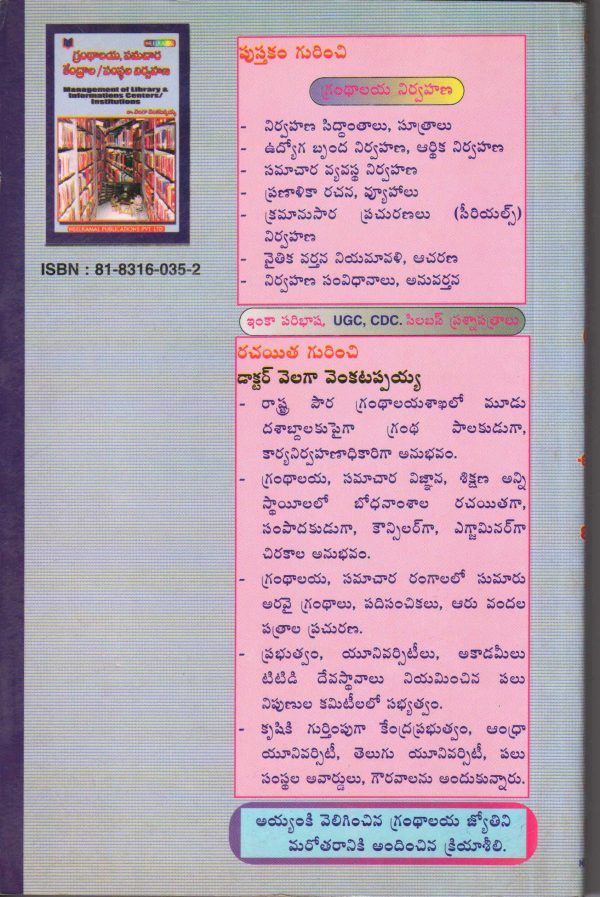 NEELKAMAL
గ్రంథాలయ, సమాచార
కేంద్రాల/సంస్థల నిర్వహణ
Management of Library &
Informations Centers/
Institutions
డా. వెలగా వెంకటప్పయ్య
NEELKAMAL PUBLICATIONS PVT. LTD
ISBN : 81-8316-035-2
పుస్తకం గురించి
గ్రంథాలయ నిర్వహణ
- నిర్వహణ సిద్ధాంతాలు, సూత్రాలు
- ఉద్యోగ బృంద నిర్వహణ, ఆర్థిక నిర్వహణ
- సమాచార వ్యవస్థ నిర్వహణ
- ప్రణాళికా రచన, వ్యూహాలు
- క్రమానుసార ప్రచురణలు (సీరియల్స్)
నిర్వహణ
- నైతిక వర్తన నియమావళి, ఆచరణ
- నిర్వహణ సంవిధానాలు, అనువర్తన
ఇంకా పరిభాష, UGC, CDC. సిలబస్ ప్రశ్నాపత్రాలు
రచయిత గురించి
డాక్టర్ వెలగా వెంకటప్పయ్య
- రాష్ట్ర పౌర గ్రంథాలయశాఖలో మూడు
దశాబ్దాలకుపైగా గ్రంథ పాలకుడుగా,
కార్యనిర్వహణాధికారిగా అనుభవం.
- గ్రంథాలయ, సమాచార విజ్ఞాన, శిక్షణ అన్ని
స్థాయీలలో బోధనాంశాల రచయితగా,
సంపాదకుడుగా, కౌన్సిలర్‌గా, ఎగ్జామినర్‌గా
చిరకాల అనుభవం.
- గ్రంథాలయ, సమాచార రంగాలలో సుమారు
అరవై గ్రంథాలు, పదిసంచికలు, ఆరు వందల
పత్రాల ప్రచురణ.
- ప్రభుత్వం, యూనివర్సిటీలు, అకాడమీలు
టిటిడి దేవస్థానాలు నియమించిన పలు
నిపుణుల కమిటీలలో సభ్యత్వం.
- కృషికి గుర్తింపుగా కేంద్రప్రభుత్వం, ఆంధ్రా
యూనివర్సిటీ, తెలుగు యూనివర్సిటీ, పలు
సంస్థల అవార్డులు, గౌరవాలను అందుకున్నారు.
అయ్యంకి వెలిగించిన గ్రంథాలయ జ్యోతిని
మరోతరానికి అందించిన క్రియాశీలి.